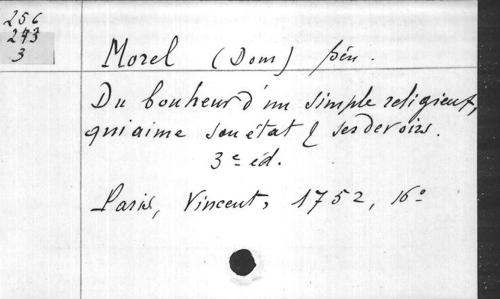 256
243
3
Morel (Dom) bén.
Du bonheur d'un simple religieux,
qui aime son état & ses devoirs.
3e éd.
Paris, Vincent, 1752, 16°